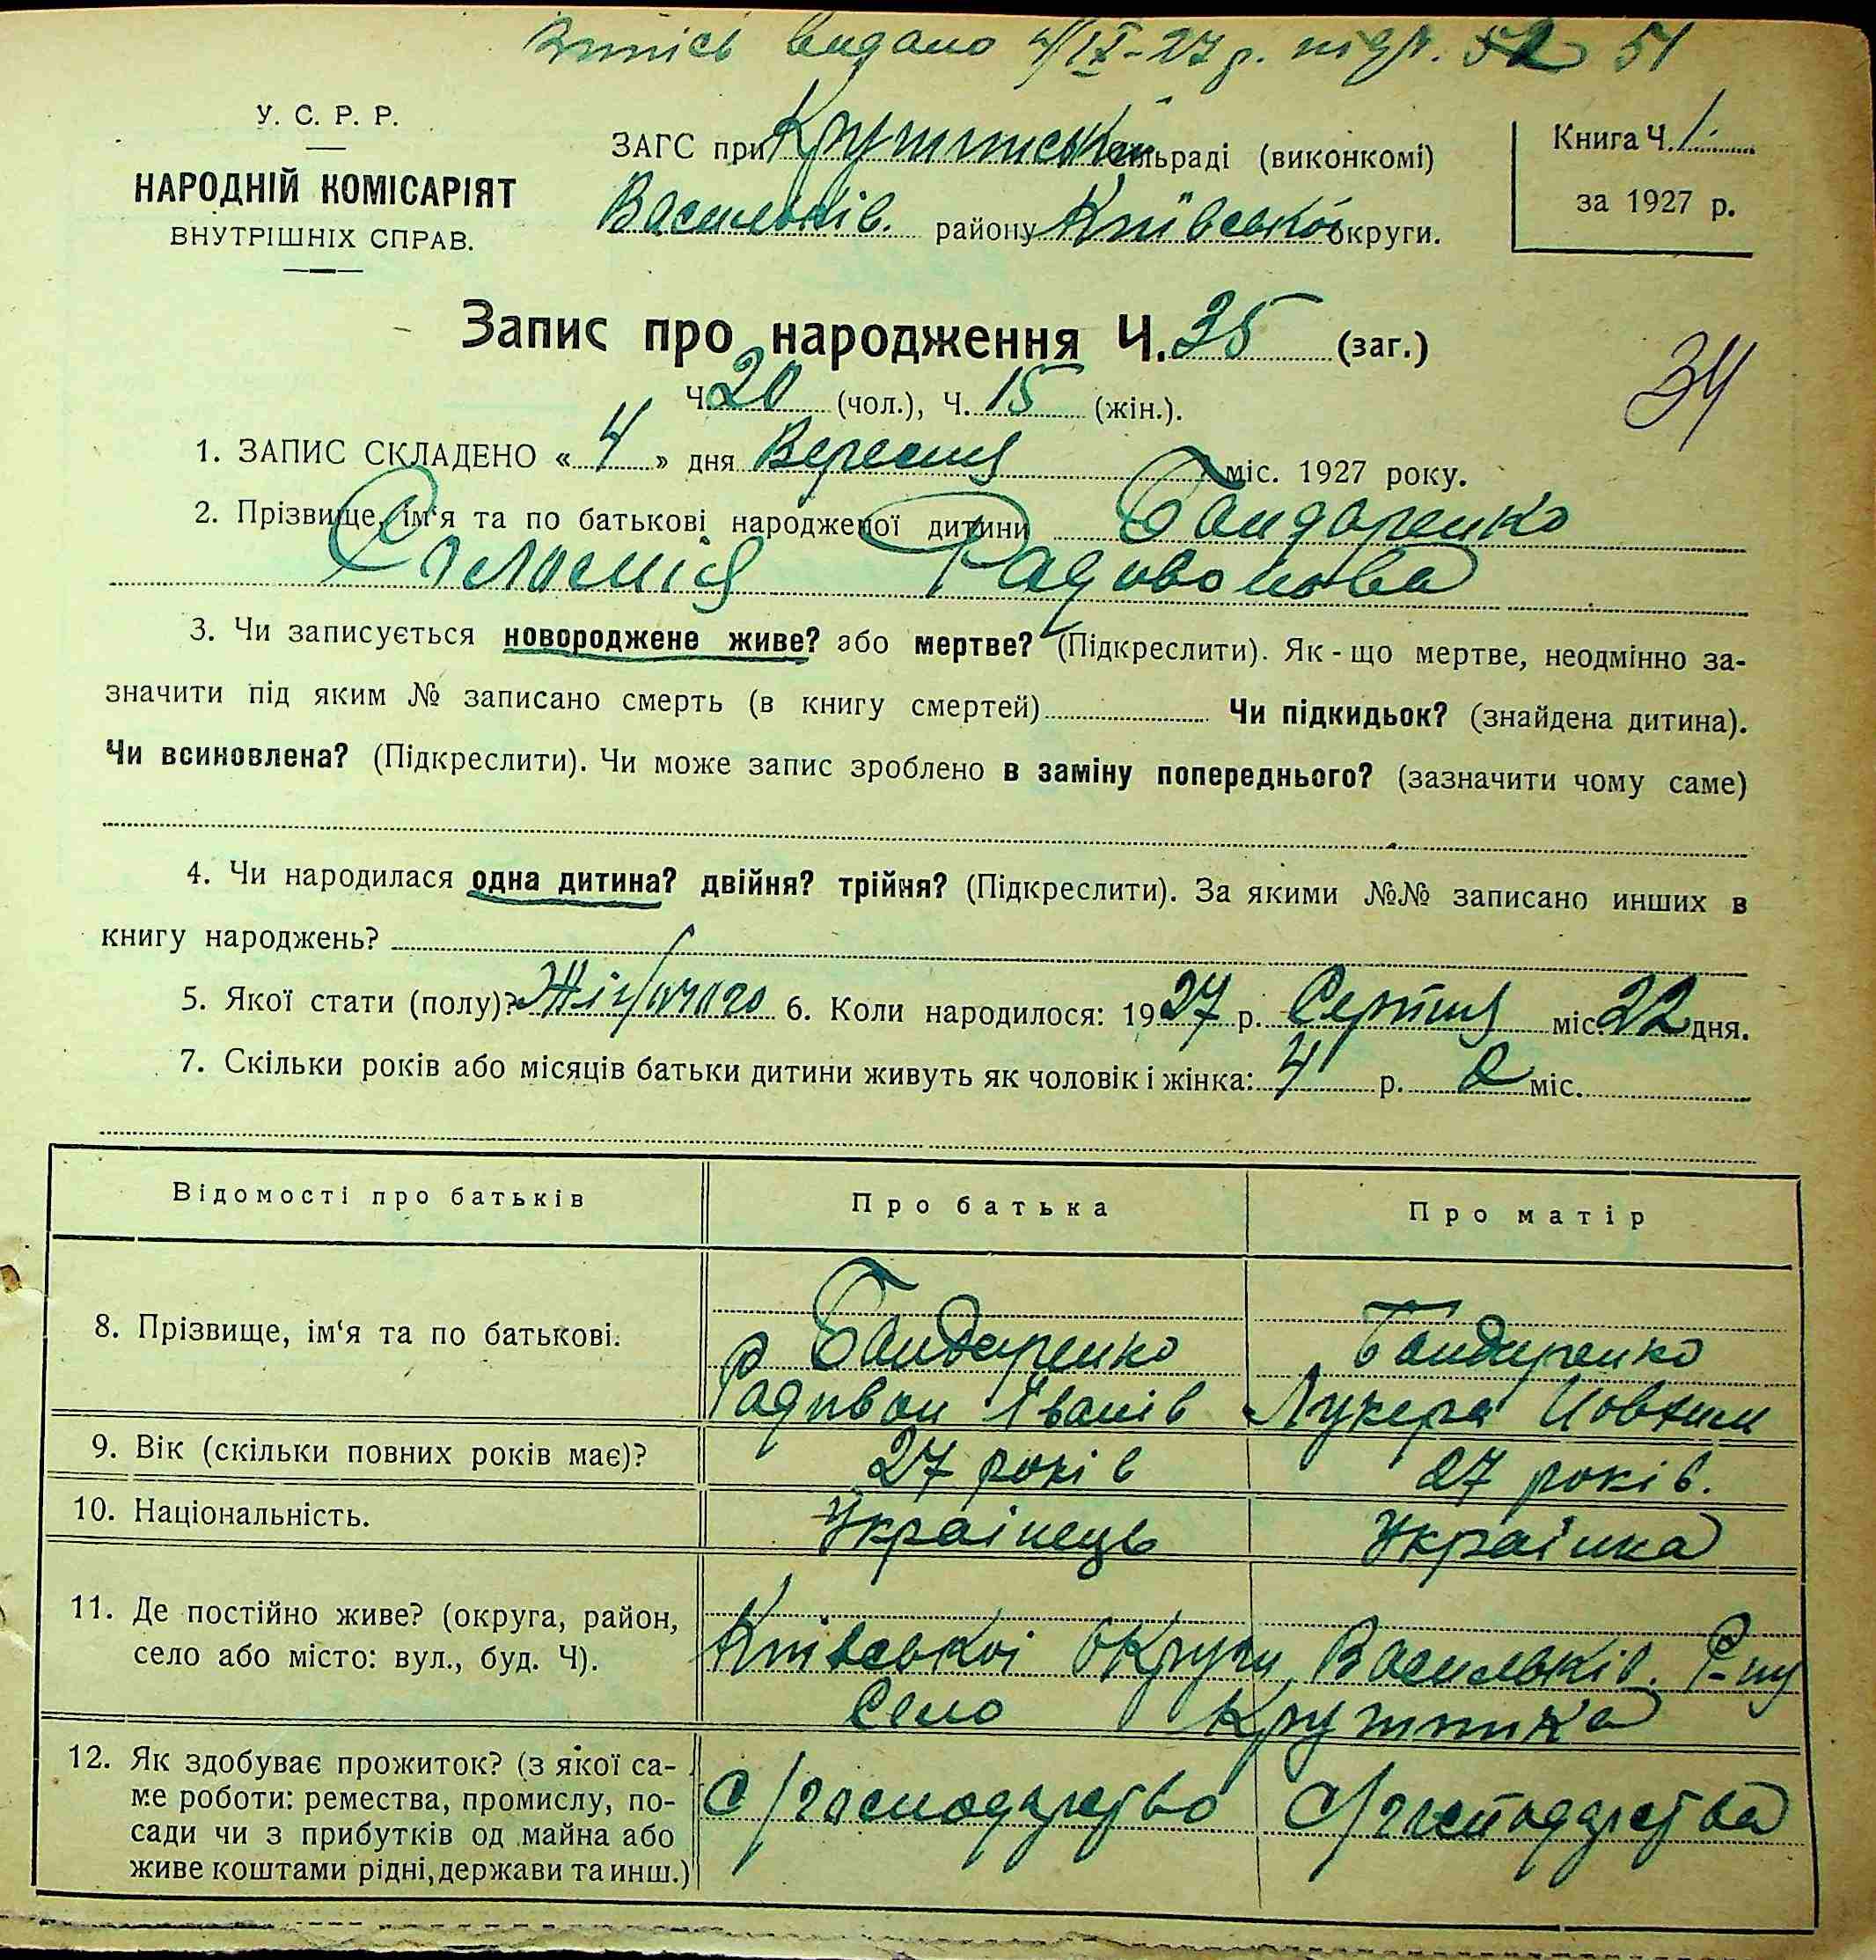 Витісь видано 4/IX-27 р. під №. 52 51
У. С. Р. Р.
НАРОДНІЙ КОМІСАРІЯТ
ВНУТРІШНІХ СПРАВ.
ЗАГС при сільраді (виконкомі)
Васильків. району Київської округи.
Книга Ч. 1
за 1927 р.
Запис про народження Ч. 35 (заг.)
Ч. 20 (чол.), Ч. 15 (жін.).
34
1. ЗАПИС СКЛАДЕНО « 4 » дня Вересня міс. 1927 року.
2. Прізвище, ім'я та по батькові народженої дитини Бандаренко
Соломія Радивонова
3. Чи записується новороджене живе? або мертве? (Підкреслити). Як-що мертве, неодмінно за-
значити під яким № записано смерть (в книгу смертей) Чи підкидьок? (знайдена дитина).
Чи всиновлена? (Підкреслити). Чи може запис зроблено в заміну попереднього? (зазначити чому саме)
4. Чи народилася одна дитина? двійня? трійня? (Підкреслити). За якими №№ записано инших в
книгу народжень?
5. Якої стати (полу)? Жіночого 6. Коли народилося: 1927 р. Серпня міс. 22 дня.
7. Скільки років або місяців батьки дитини живуть як чоловік і жінка: 4 р. 2 міс.
Відомості про батьків Про батька Про матір
8. Прізвище, ім'я та по батькові. Бандаренко Бандаренко
Радивон Іванів Лукера
9. Вік (скільки повних років має)? 27 років 27 років.
10. Національність. Українець Українка
11. Де постійно живе? (округа, район, Київської округи Васильків. Р-ну
село або місто: вул., буд. Ч). Село Крушинка
12. Як здобуває прожиток? (з якої са- С/господарство С/господарства
ме роботи: ремества, промислу, по-
сади чи з прибутків од майна або
живе коштами рідні, держави та инш.)